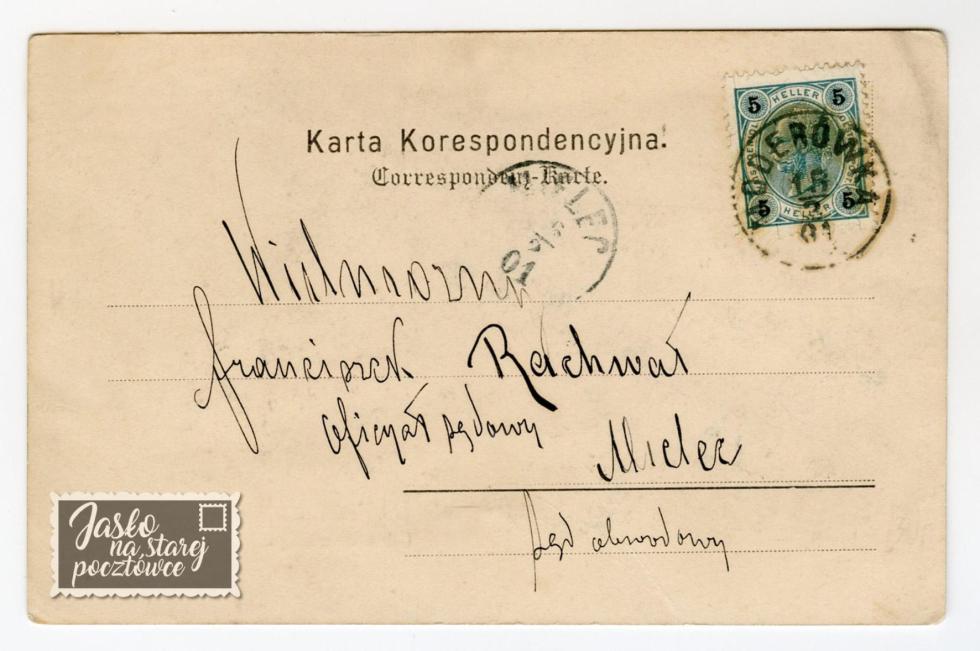 Karta Korespondencyjna.
Correspondenz-Karte.
5 HELLER 5
5 HELLER 5
15
01
01
Franciszek Rachwał
oficyał sądowy
Mielec
Sąd obwodowy
Jasło
na starej
pocztówce